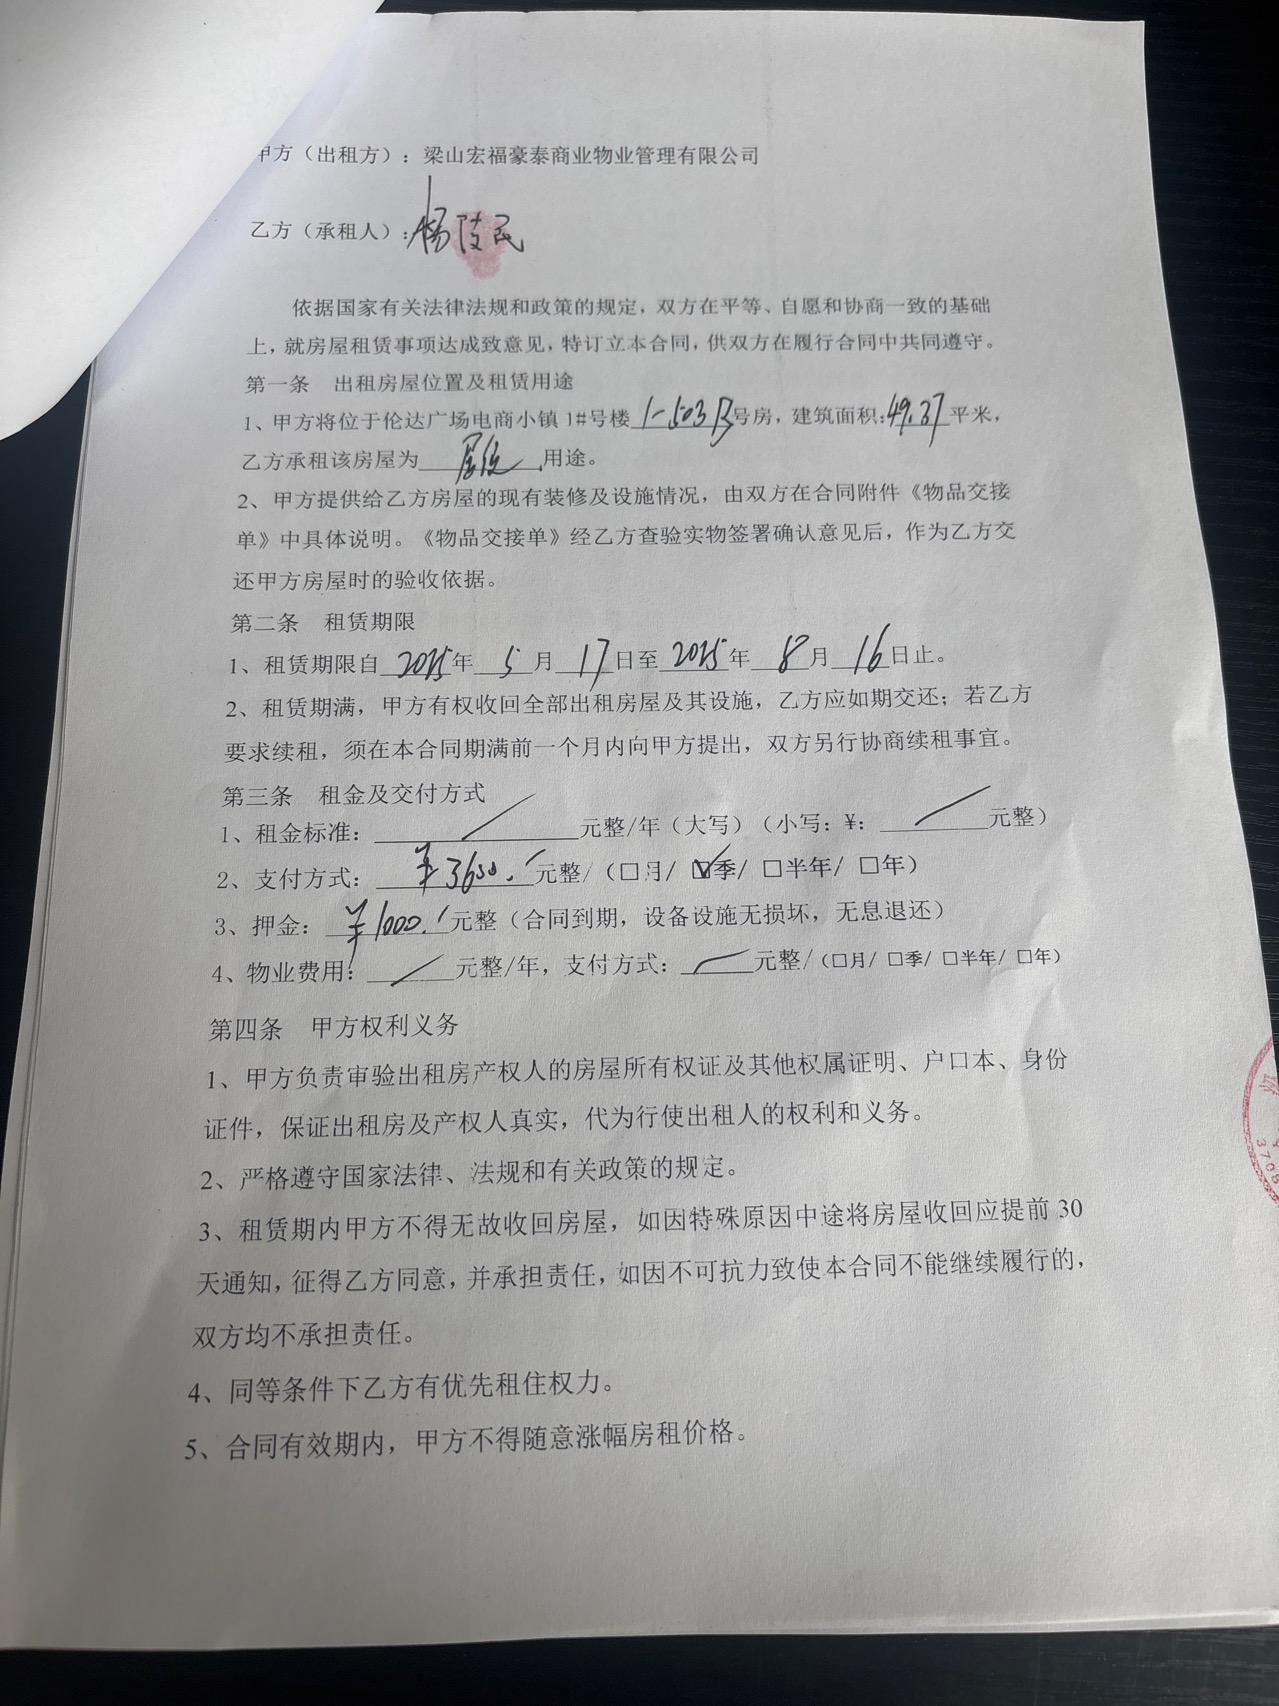 甲方（出租方）：梁山宏福豪泰商业物业管理有限公司
乙方（承租人）：杨陵民
依据国家有关法律法规和政策的规定，双方在平等、自愿和协商一致的基础
上，就房屋租赁事项达成致意见，特订立本合同，供双方在履行合同中共同遵守。
第一条 出租房屋位置及租赁用途
1、甲方将位于伦达广场电商小镇 1#号楼 1-503 号房，建筑面积:49.37平米，
乙方承租该房屋为 居住 用途。
2、甲方提供给乙方房屋的现有装修及设施情况，由双方在合同附件《物品交接
单》中具体说明。《物品交接单》经乙方查验实物签署确认意见后，作为乙方交
还甲方房屋时的验收依据。
第二条 租赁期限
1、租赁期限自 2025年 5 月 17日至 2025年 8 月 16日止。
2、租赁期满，甲方有权收回全部出租房屋及其设施，乙方应如期交还；若乙方
要求续租，须在本合同期满前一个月内向甲方提出，双方另行协商续租事宜。
第三条 租金及交付方式
1、租金标准：/元整/年（大写）（小写：¥：/元整）
2、支付方式：¥3600.元整/（□月/ ☑季/ □半年/ □年）
3、押金：¥1000.元整（合同到期，设备设施无损坏，无息退还）
4、物业费用：/元整/年，支付方式：/元整/（□月/ □季/ □半年/ □年）
第四条 甲方权利义务
1、甲方负责审验出租房产权人的房屋所有权证及其他权属证明、户口本、身份
证件，保证出租房及产权人真实，代为行使出租人的权利和义务。
2、严格遵守国家法律、法规和有关政策的规定。
3、租赁期内甲方不得无故收回房屋，如因特殊原因中途将房屋收回应提前 30
天通知，征得乙方同意，并承担责任，如因不可抗力致使本合同不能继续履行的，
双方均不承担责任。
4、同等条件下乙方有优先租住权力。
5、合同有效期内，甲方不得随意涨幅房租价格。
3708